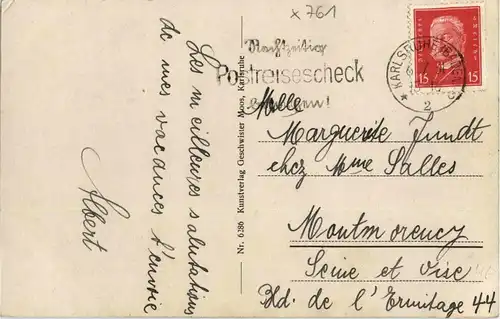 x 761
Rechtzeitig
Postreisescheck
KARLSRUHE (BADEN)
2
15 15
Les meilleures salutations
de mes vacances t'envoie
Albert
Nr. 6386 Kunstverlag Geschwister Moos, Karlsruhe
Melle
Marguerite Jundt
chez Mme Salles
Montmorency
Seine et Oise
Bld. de l'Ermitage 44